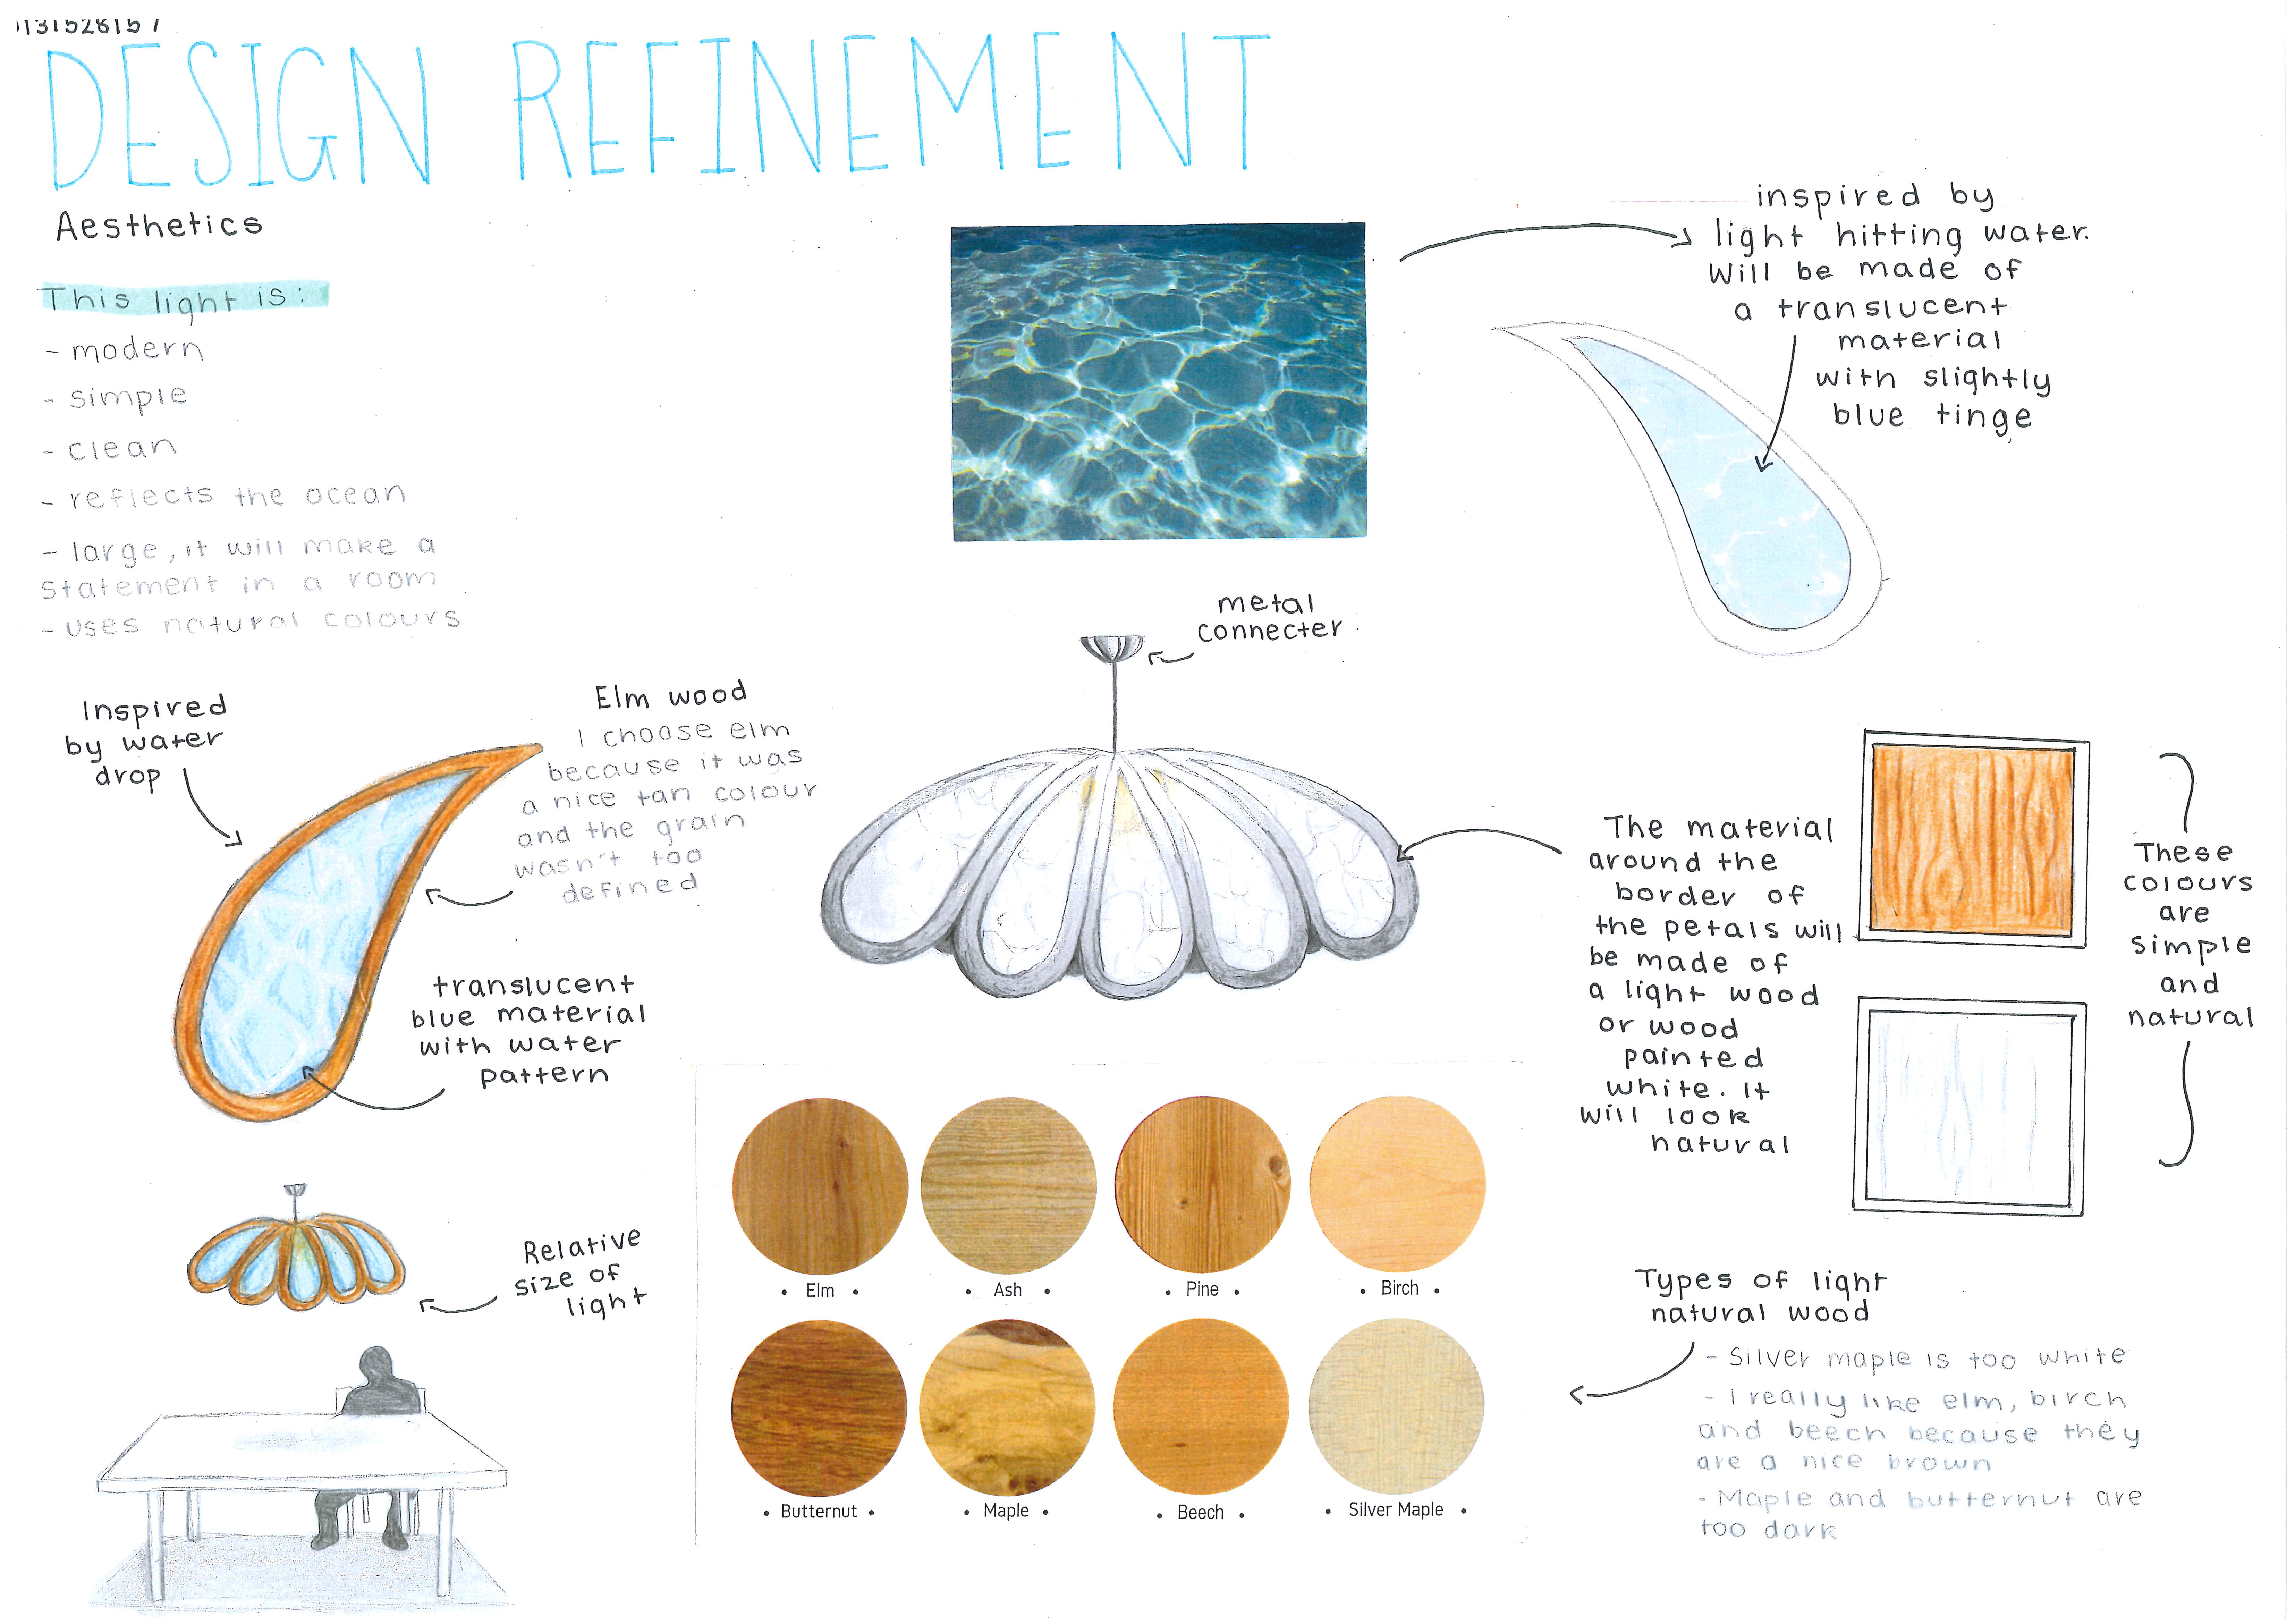 DESIGN REFINEMENT
Aesthetics
This light is:
- modern
- simple
- clean
- reflects the ocean
- large, it will make a
statement in a room
- uses natural colours
inspired by
light hitting water.
Will be made of
a translucent
material
with slightly
blue tinge
metal
connecter
Inspired
by water
drop
Elm wood
I choose elm
because it was
a nice tan colour
and the grain
wasn't too
defined
translucent
blue material
with water
pattern
The material
around the
border of
the petals will
be made of
a light wood
or wood
painted
white. It
will look
natural
These
colours
are
simple
and
natural
Relative
size of
light
• Elm •
• Ash •
• Pine •
• Birch •
• Butternut •
• Maple •
• Beech •
• Silver Maple •
Types of light
natural wood
- Silver maple is too white
- I really like elm, birch
and beech because they
are a nice brown
- Maple and butternut are
too dark